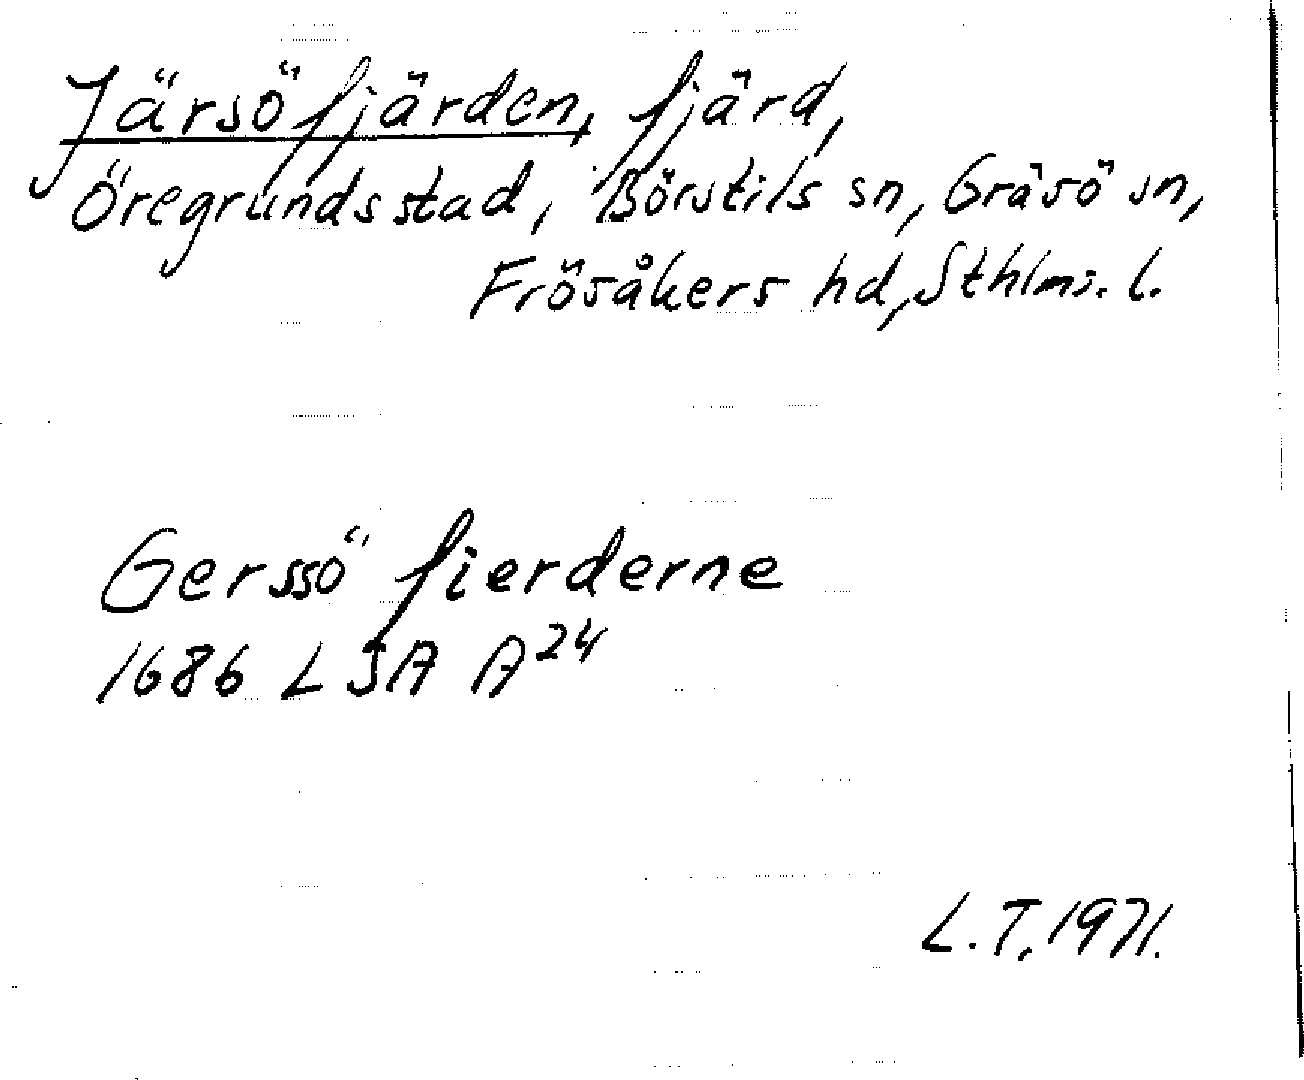 Järsöfjärden, fjärd,
Öregrunds stad, Börstils sn, Gräsö sn,
Frösåkers hd, Sthlms. l.
Gerssö fierderne
1686 LSA A24
L.T. 1971.